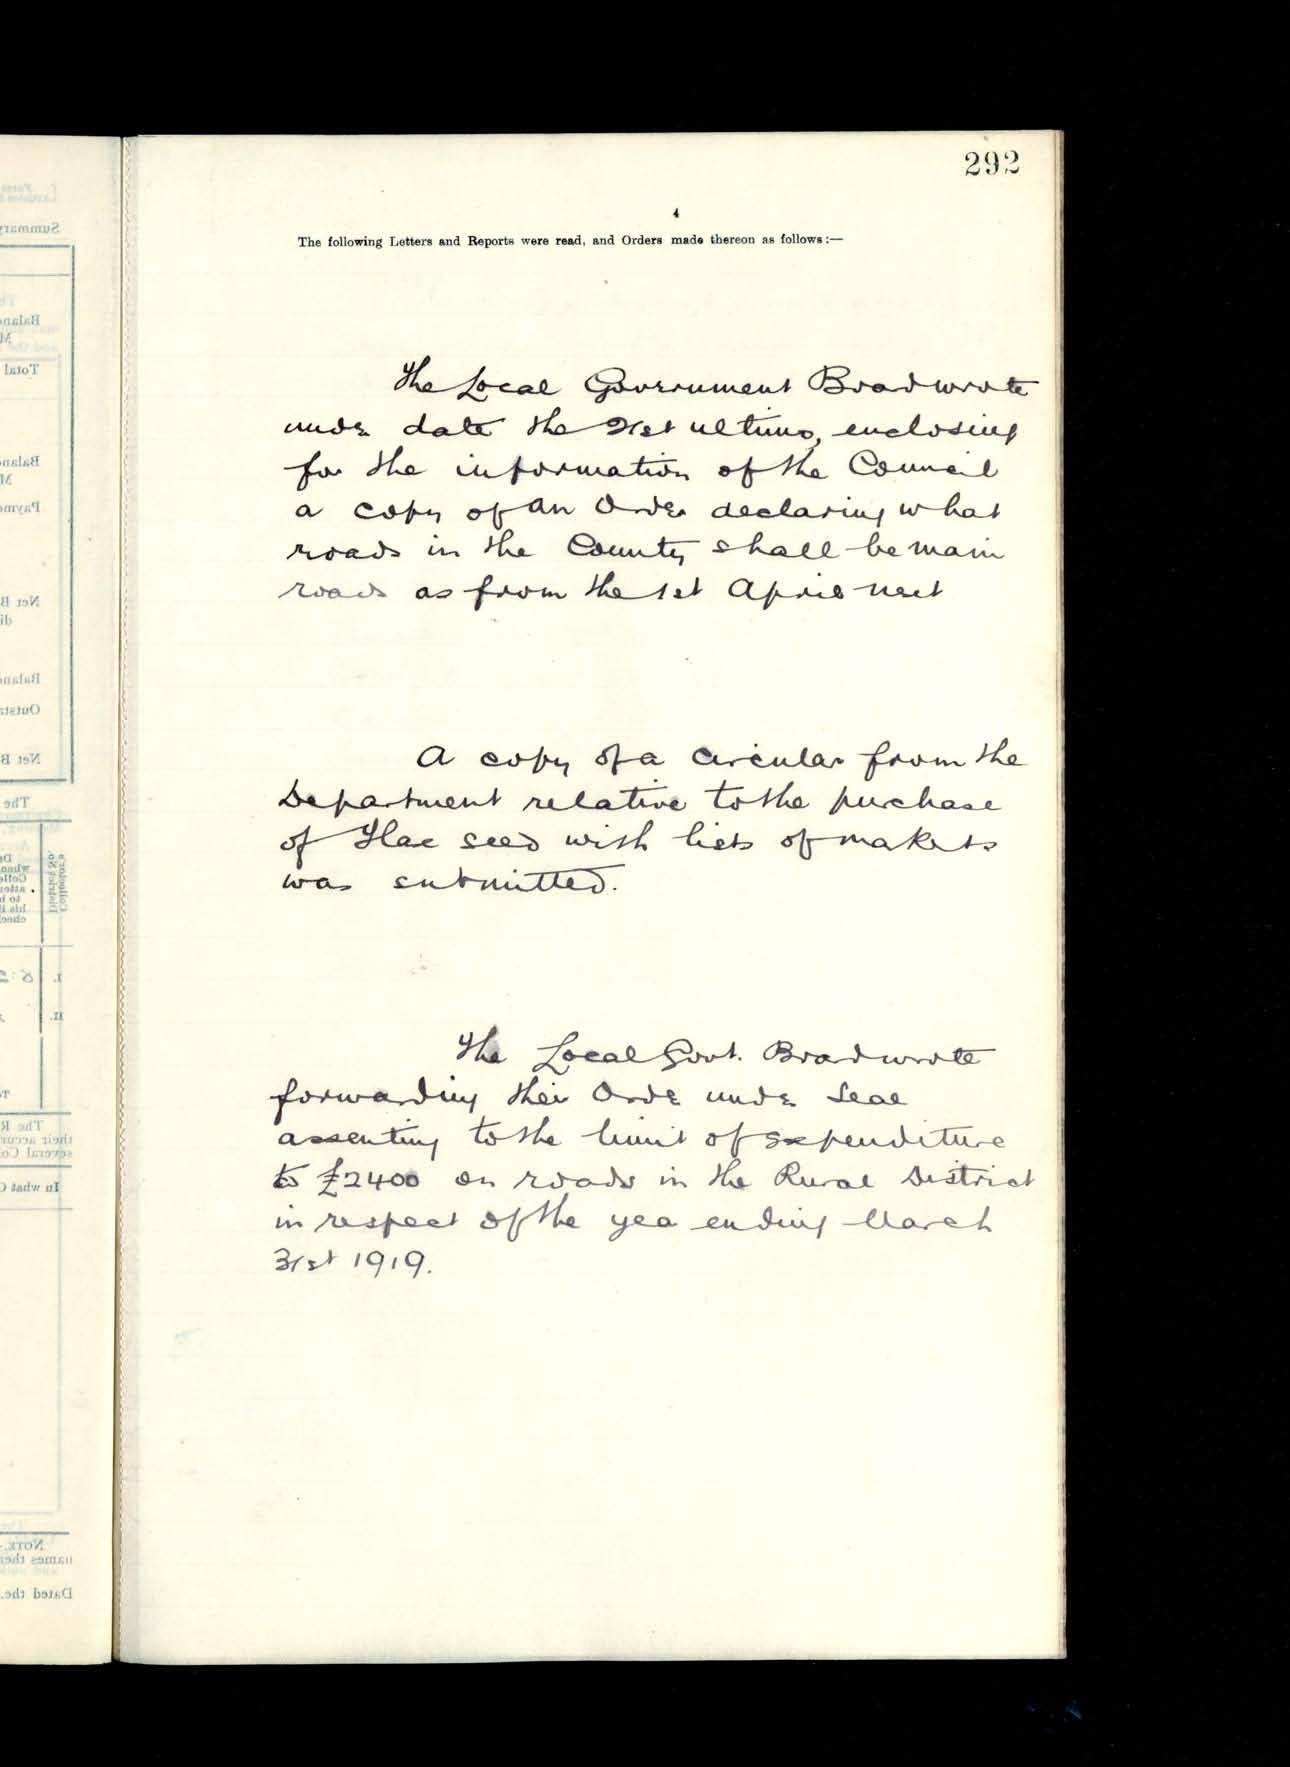 292
4
The following Letters and Reports were read, and Orders made thereon as follows:—
The Local Government Board wrote
under date the 21st ultimo, enclosing
for the information of the Council
a copy of an Order declaring what
roads in the County shall be main
roads as from the 1st April next
A copy of a circular from the
Department relative to the purchase
of Flax seed with lists of markets
was submitted.
The Local Govt. Board wrote
forwarding their Order under Seal
assenting to the limit of expenditure
to £2400 on roads in the Rural District
in respect of the year ending March
31st 1919.